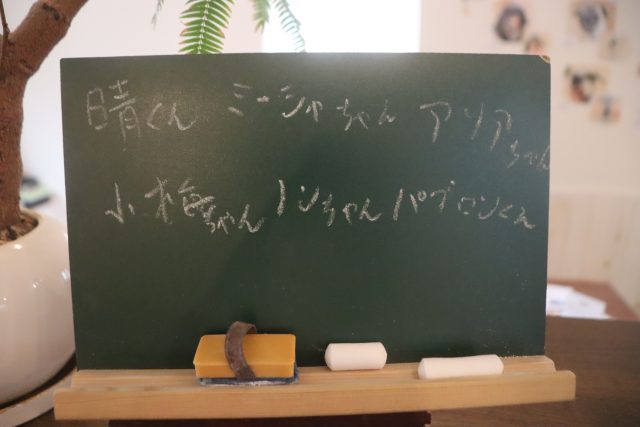 晴くん ミーシャちゃん アリアちゃん
小梅ちゃん ノンちゃん パブロンくん